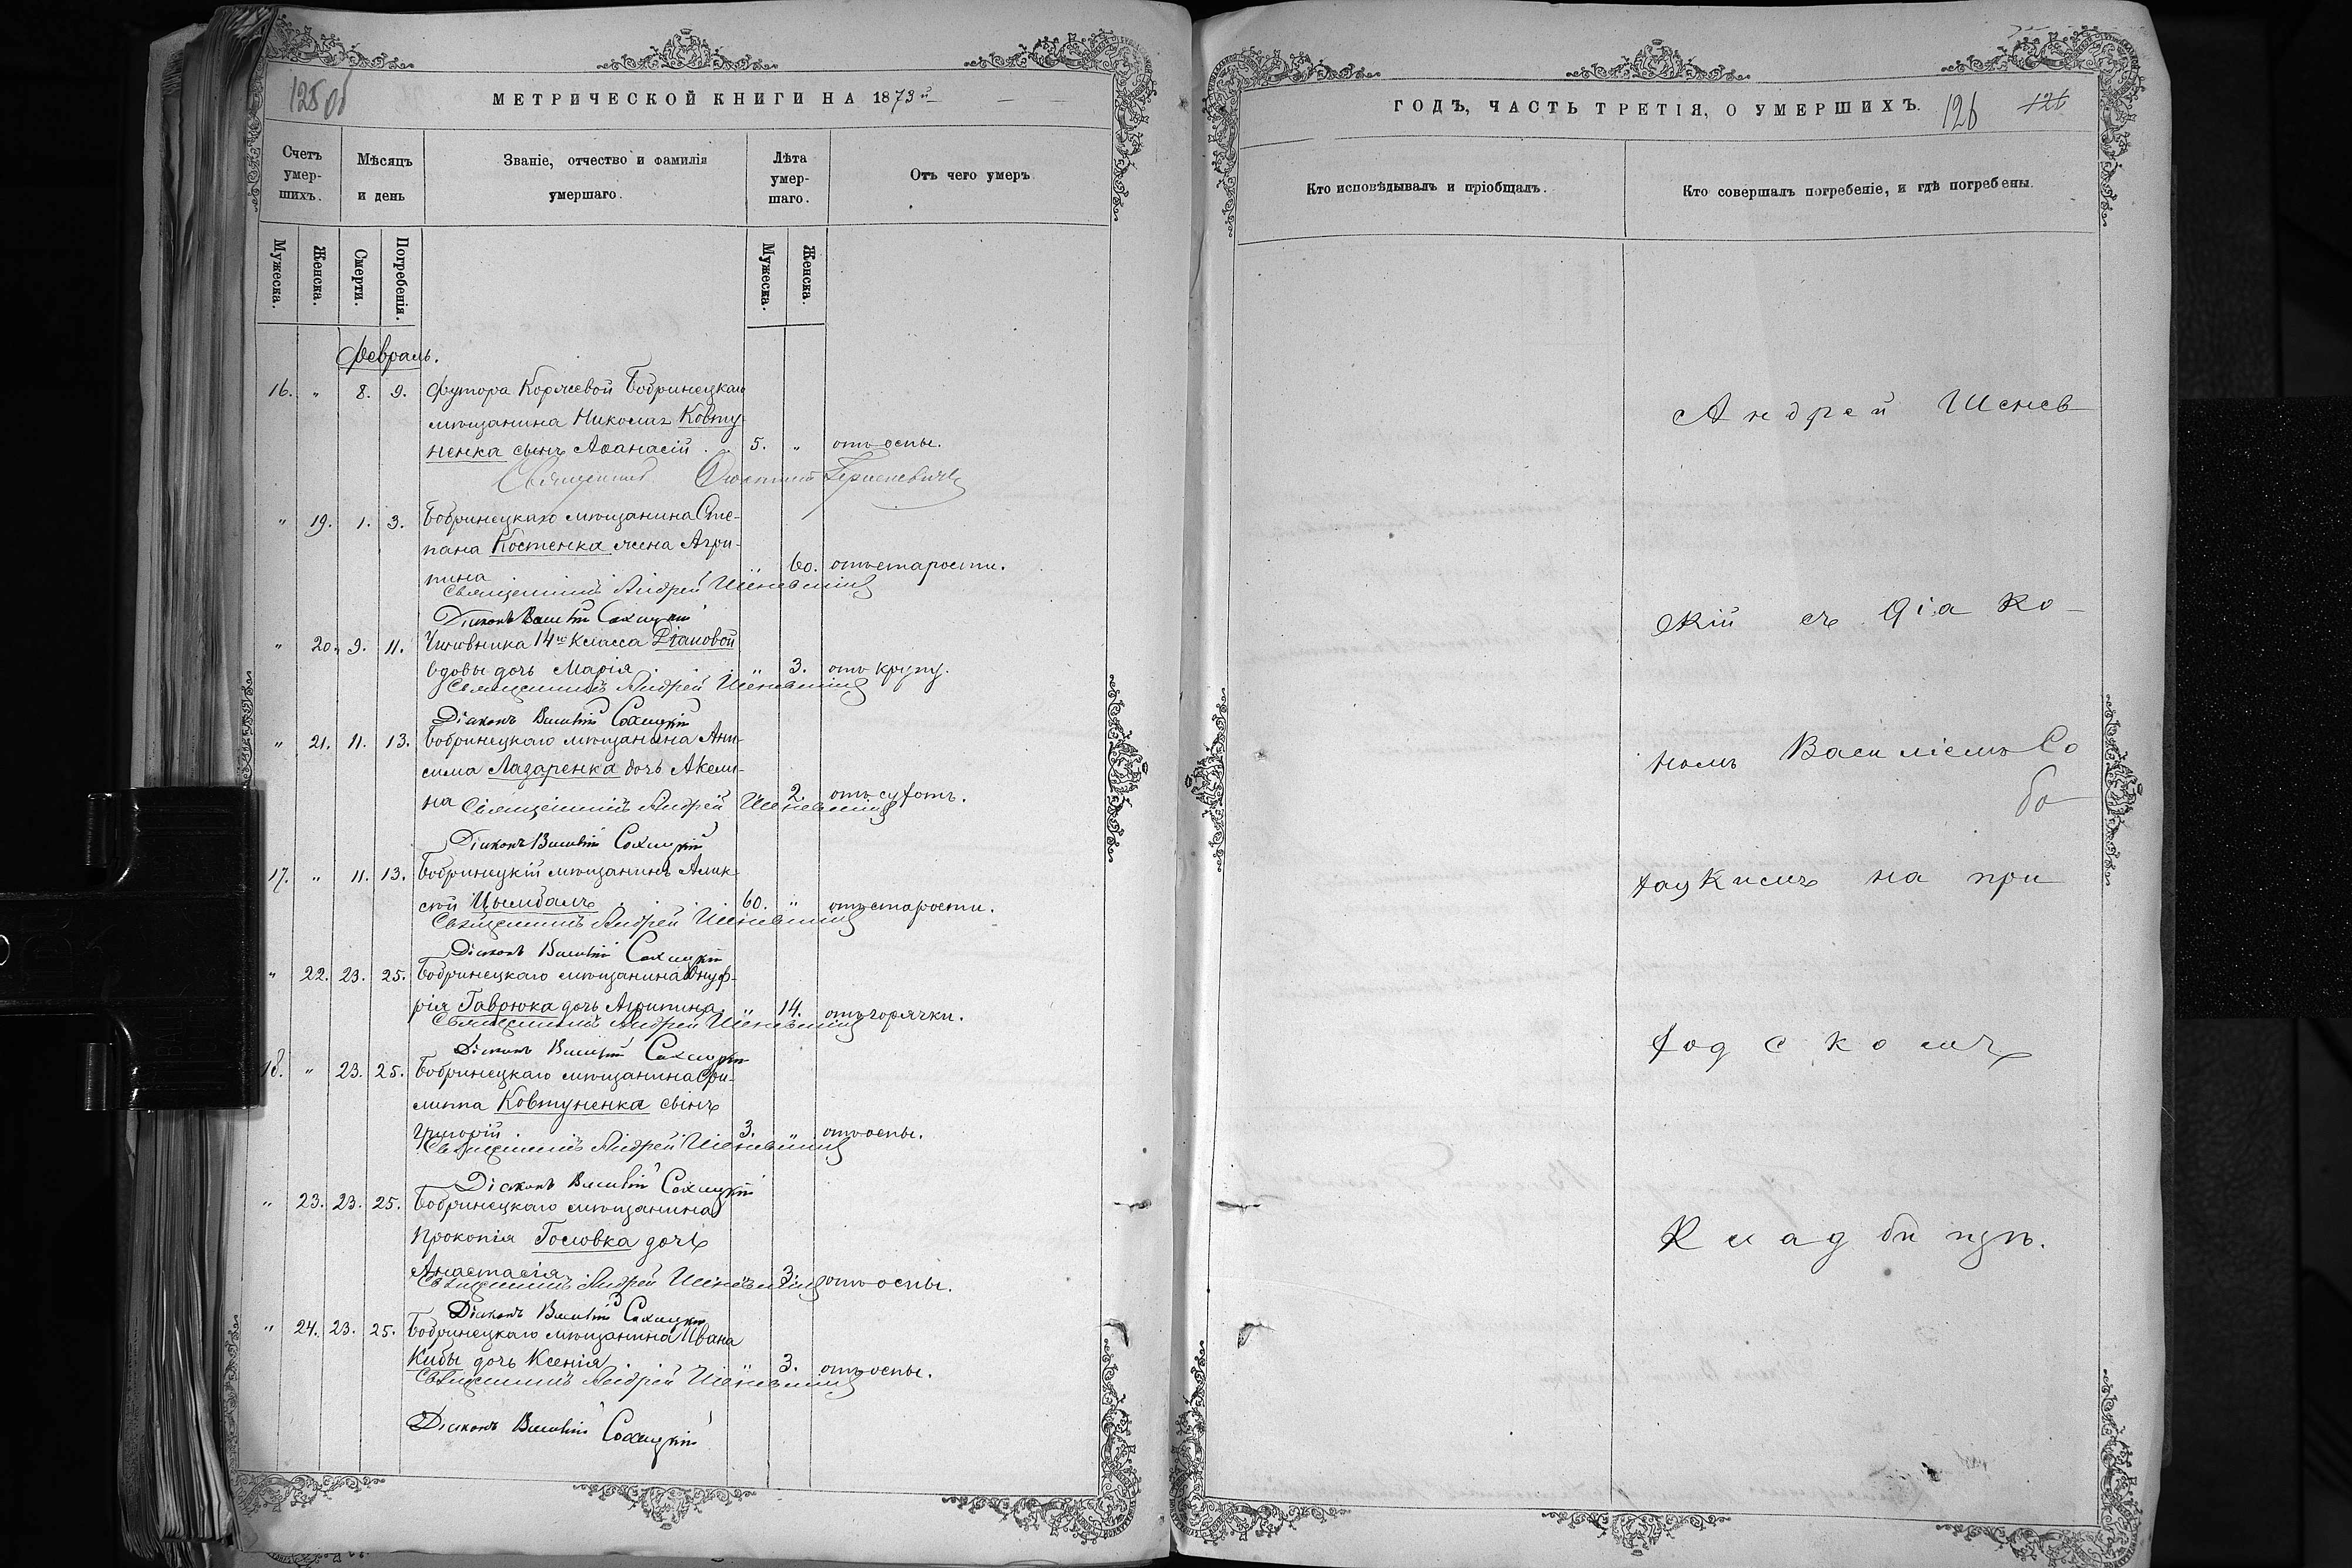 125 об
МЕТРИЧЕСКОЙ КНИГИ НА 1873й
Счетъ умер-шихъ.
Мѣсяцъ и день
Званіе, отчество и фамилія умершаго.
Лѣта умер-шаго.
Отъ чего умеръ
Мужеска. Женска. Смерти. Погребенія. Мужеска. Женска.
Февраль.
16. " 8. 9. Футора Корлсевой Бобринецкаго
мѣщанина Николая Ковту-
ненка сынъ Аѳанасій . . 5. " отъ оспы.
Священникъ
" 19. 1. 3. Бобринецкаго мѣщанина Сте-
пана Костенка жена Агри-
пина " 60. отъ старости.
Священникъ Андрей Шеневскій
Діаконъ Василій
" 20. 9. 11. Чиновника 14го класса Діановой
вдовы дочь Марія " 3. отъ крупу.
Священникъ Андрей Шеневскій
Діаконъ Василій
" 21. 11. 13. Бобринецкаго мѣщанина Ани-
сима Лазаренка дочь Акели-
на 2. отъ сухотъ.
Священникъ Андрей Шеневскій
Діаконъ Василій
17. " 11. 13. Бобринецкій мѣщанинъ Алек-
сѣй Цымбалъ 60. " отъ старости.
Священникъ Андрей Шеневскій
Діаконъ Василій
" 22. 23. 25. Бобринецкаго мѣщанина Онуф-
рія Гаврюка дочь Агрипина " 14. отъ горячки.
Священникъ Андрей Шеневскій
Діаконъ Василій
18. " 23. 25. Бобринецкаго мѣщанина Фи-
липпа Ковтуненка сынъ
Григорій 3. " отъ оспы.
Священникъ Андрей Шеневскій
Діаконъ Василій
" 23. 23. 25. Бобринецкаго мѣщанина
Прокопія Головка дочь
Анастасія " 3. отъ оспы.
Священникъ Андрей Шеневскій
Діаконъ Василій
" 24. 23. 25. Бобринецкаго мѣщанина Ивана
Кибы дочь Ксенія " 3. отъ оспы.
Священникъ Андрей Шеневскій
Діаконъ Василій
ГОДЪ, ЧАСТЬ ТРЕТІЯ, О УМЕРШИХЪ. 126 126
Кто исповѣдывалъ и пріобщалъ.
Кто совершалъ погребеніе, и гдѣ погребены.
Андрей Шенев
скій съ Діако-
номъ Василіемъ Со
хацкимъ на при
ходскомъ
Кладбищѣ.